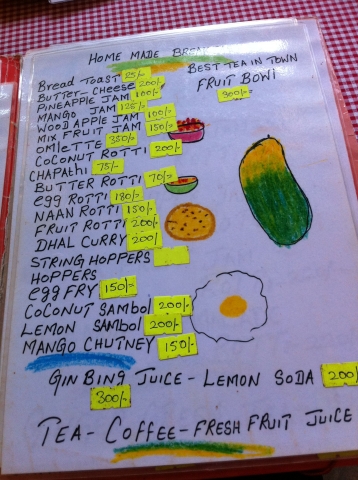 HOME MADE
BEST TEA IN TOWN
FRUIT BOWL
300/-
Bread Toast 25/-
BUTTER-CHEESE 200/-
PINEAPPLE JAM 100/-
MANGO JAM 125/-
WOOD APPLE JAM 100/-
MIX FRUIT JAM 150/-
OMLETTE 350/-
COCONUT ROTTI 200/-
CHAPATHI 75/-
BUTTER ROTTI 70/=
egg ROTTI 180/-
NAAN ROTTI 150/-
FRUIT ROTTI 200/-
DHAL CURRY 200/
STRING HOPPERS
HOPPERS
egg FRY 150/=
COCONUT SAMBOL 200/-
LEMON SAMBOL 200/-
MANGO CHUTNEY 150/-
GIN BING JUICE - LEMON SODA 200
300/-
TEA - COFFEE - FRESH FRUIT JUICE